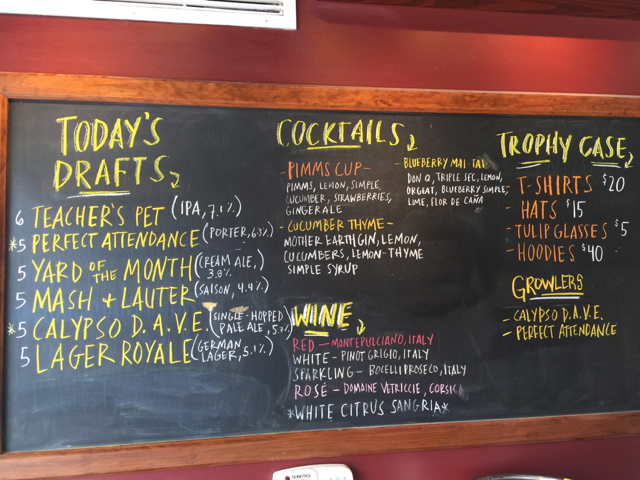 TODAY'S
DRAFTS
6 TEACHER'S PET (IPA, 7.1%)
*5 PERFECT ATTENDANCE (PORTER, 6.3%)
5 YARD OF THE MONTH (CREAM ALE, 3.8%)
5 MASH + LAUTER (SAISON, 4.4%)
*5 CALYPSO D.A.V.E. (SINGLE-HOPPED PALE ALE, 5.
5 LAGER ROYALE (GERMAN LAGER, 5.1%)
COCKTAILS
- PIMMS CUP -
PIMMS, LEMON, SIMPLE,
CUCUMBER, STRAWBERRIES,
GINGER ALE
- CUCUMBER THYME -
MOTHER EARTH GIN, LEMON,
CUCUMBERS, LEMON-THYME
SIMPLE SYRUP
- BLUEBERRY MAI-TAI -
DON Q, TRIPLE SEC, LEMON,
ORGEAT, BLUEBERRY SIMPLE,
LIME, FLOR DE CAÑA
WINE
RED - MONTEPULCIANO, ITALY
WHITE - PINOT GRIGIO, ITALY
SPARKLING - BOCELLI PROSECO, ITALY
ROSÉ - DOMAINE VETRICCIE, CORSICA
*WHITE CITRUS SANGRIA*
TROPHY CASE
- T-SHIRTS $20
- HATS $15
- TULIP GLASSES $5
- HOODIES $40
GROWLERS
- CALYPSO D.A.V.E.
- PERFECT ATTENDANCE